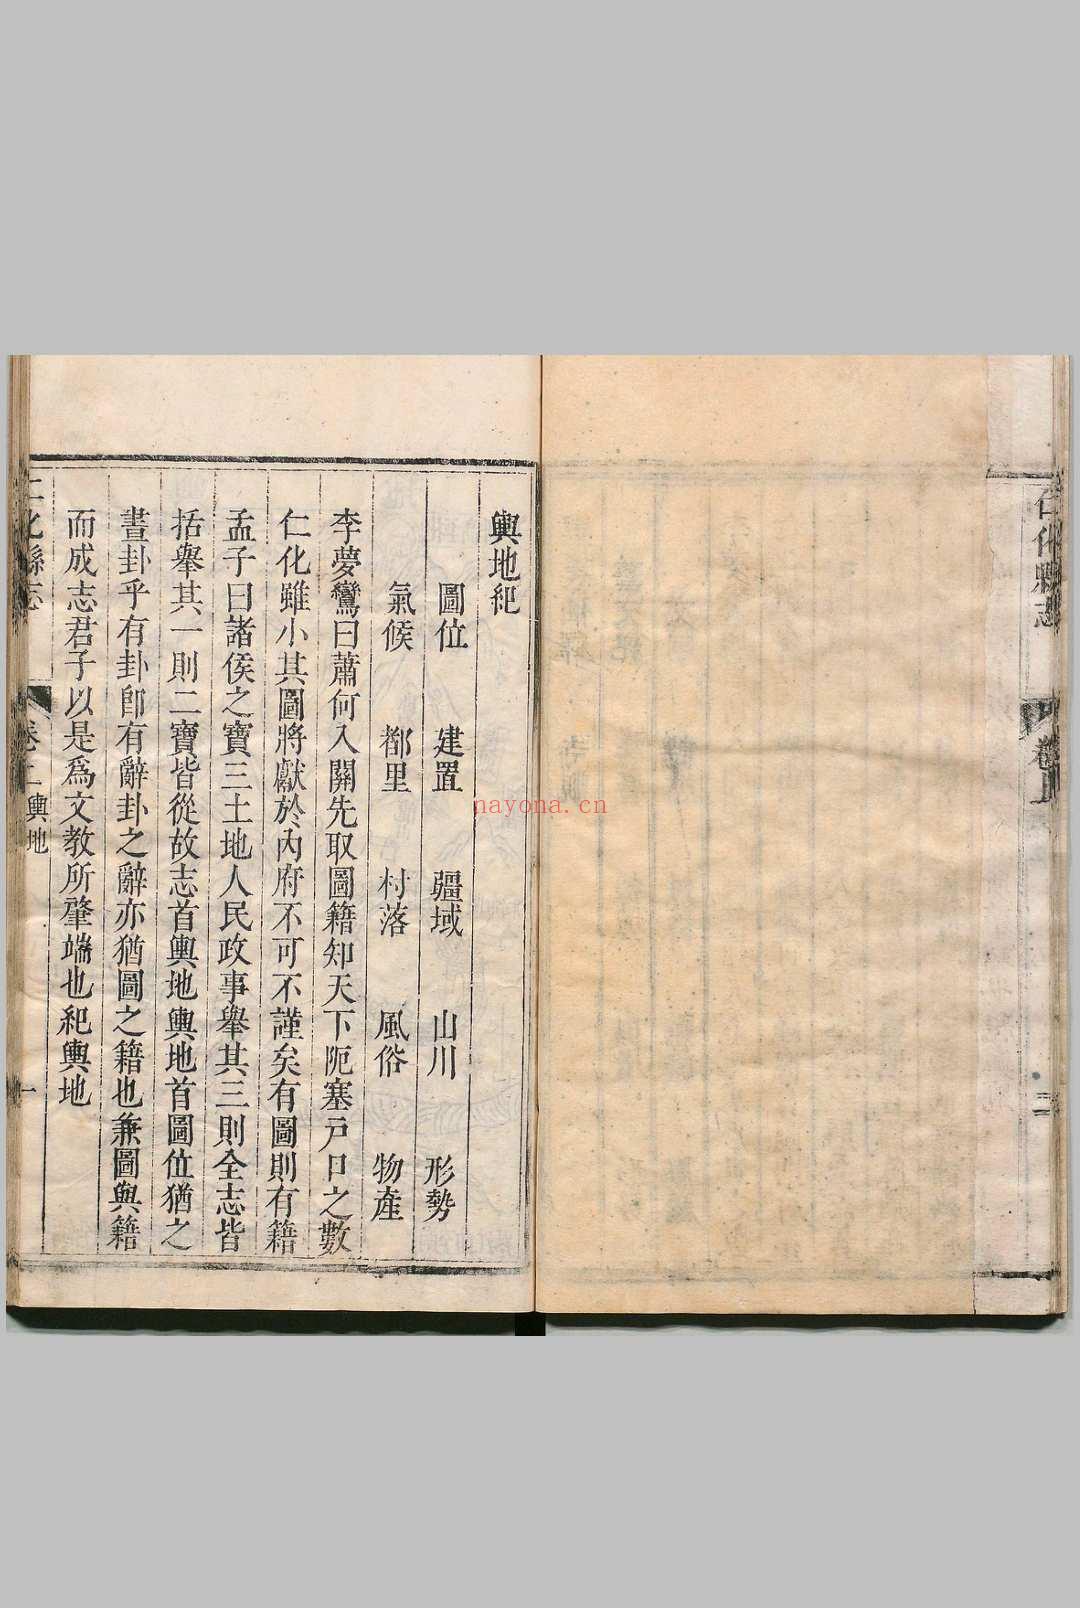 仁化縣志
卷
二
輿地紀
圖位 建置 疆域 山川 形勢
氣候 都里 村落 風俗 物產
李夢鸞曰蕭何入關先取圖籍知天下阨塞戶口之數
仁化雖小其圖將獻於內府不可不謹矣有圖則有籍
孟子曰諸侯之寶三土地人民政事舉其三則全志皆
括舉其一則二寶皆從故志首輿地輿地首圖位猶之
畫卦乎有卦卽有辭卦之辭亦猶圖之籍也兼圖與籍
而成志君子以是為文教所肇端也紀輿地
仁化縣志
卷二輿地
一
nayona.cn